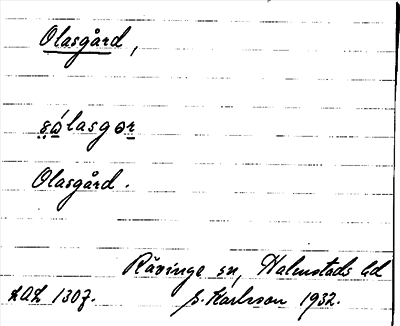 Olasgård,
sǻlasgɵr
Olasgård.
Rävinge sn, Halmstads hd
LAL 1307. S. Karlsson 1932.